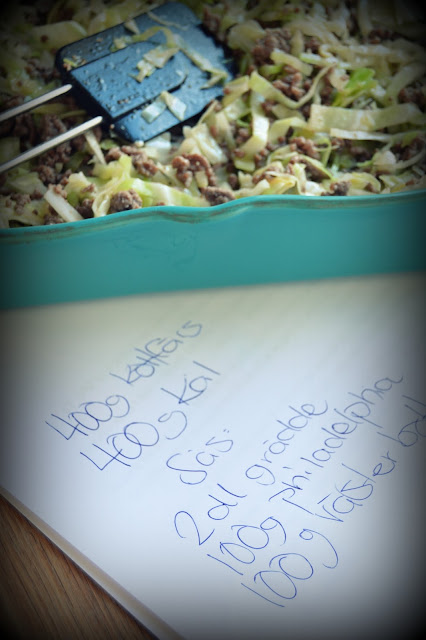 400g köttfärs
400g kål
Sås:
2 dl grädde
100g philadelpha
100g Västerbott